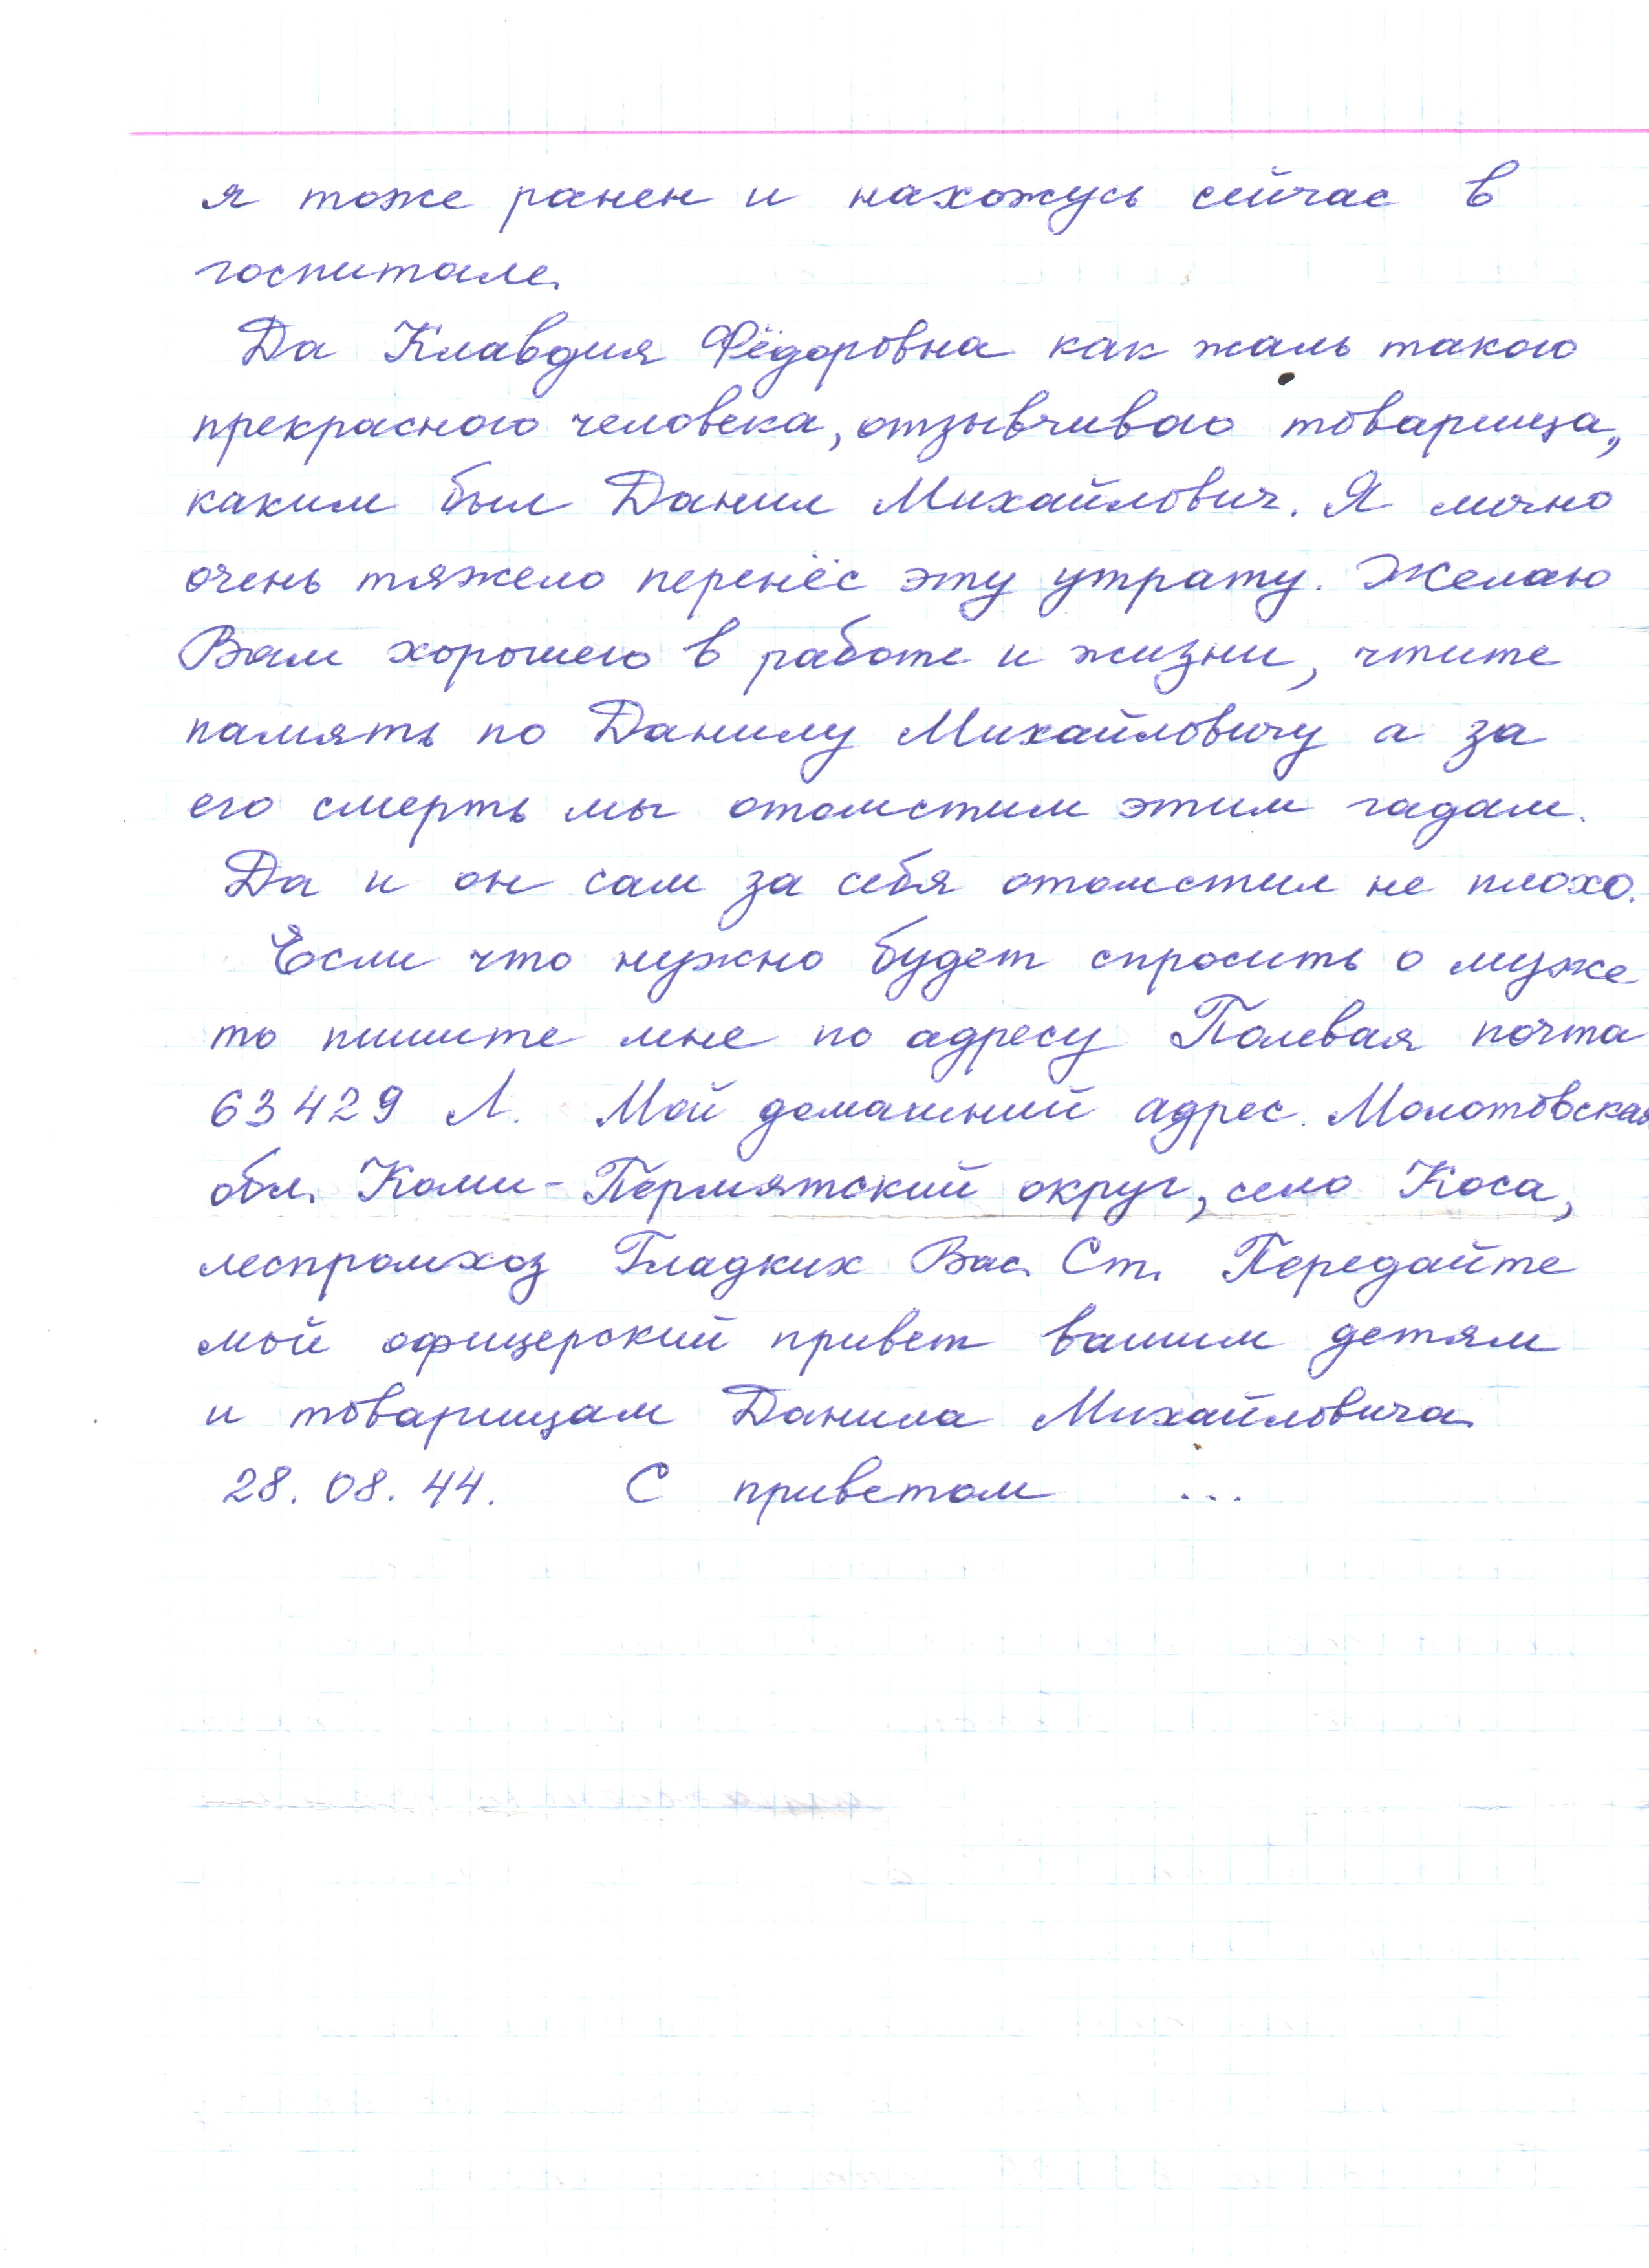 я тоже ранен и нахожусь сейчас в
госпитале.
Да Клавдия Фёдоровна как жаль такого
прекрасного человека, отзывчивого товарища,
каким был Данил Михайлович. Я лично
очень тяжело перенёс эту утрату. Желаю
Вам хорошего в работе и жизни, чтите
память по Данилу Михайловичу а за
его смерть мы отомстим этим гадам.
Да и он сам за себя отомстил не плохо.
Если что нужно будет спросить о муже
то пишите мне по адресу Полевая почта
63429 Л. Мой домашний адрес. Молотовская
обл. Коми-Пермятский округ, село Коса,
леспромхоз Гладких Вас. Ст. Передайте
мой офицерский привет вашим детям
и товарищам Данила Михайловича.
28.08.44. С приветом ...